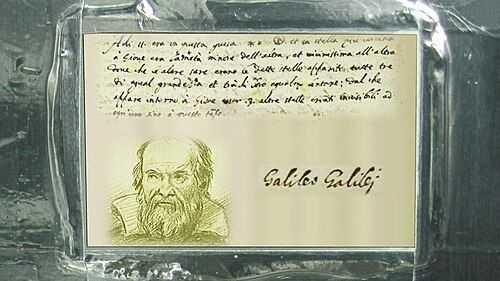 Adi 11. era in questa guisa et la stella più vicina
à Giove era la metà minore dell'altra, et vicinissima all'altra
dove che le altre sere erano le dette stelle apparite tutte tre
di egual grandezza et trà di loro egualmte lontane; dal che
appare intorno à Giove esser 3. altre stelle erranti invisibili ad
ogn'uno sino à questo tempo
Galileo Galilej